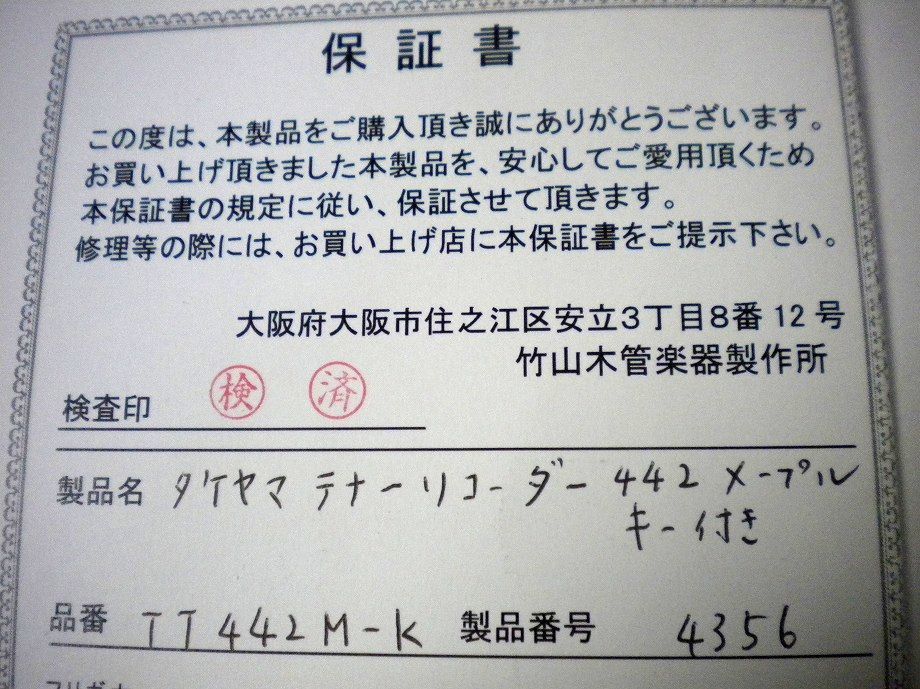 保証書
この度は、本製品をご購入頂き誠にありがとうございます。
お買い上げ頂きました本製品を、安心してご愛用頂くため
本保証書の規定に従い、保証させて頂きます。
修理等の際には、お買い上げ店に本保証書をご提示下さい。
大阪府大阪市住之江区安立3丁目8番12号
竹山木管楽器製作所
検査印 検 済
製品名 タケヤマ テナーリコーダー 442 メープル
キー付き
品番 TT442M-K 製品番号 4356